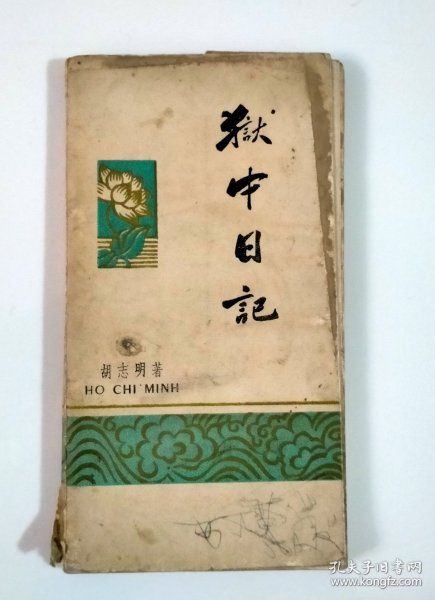 獄中日記
胡志明著
HO CHI MINH
孔夫子旧书网
www.kongfz.com